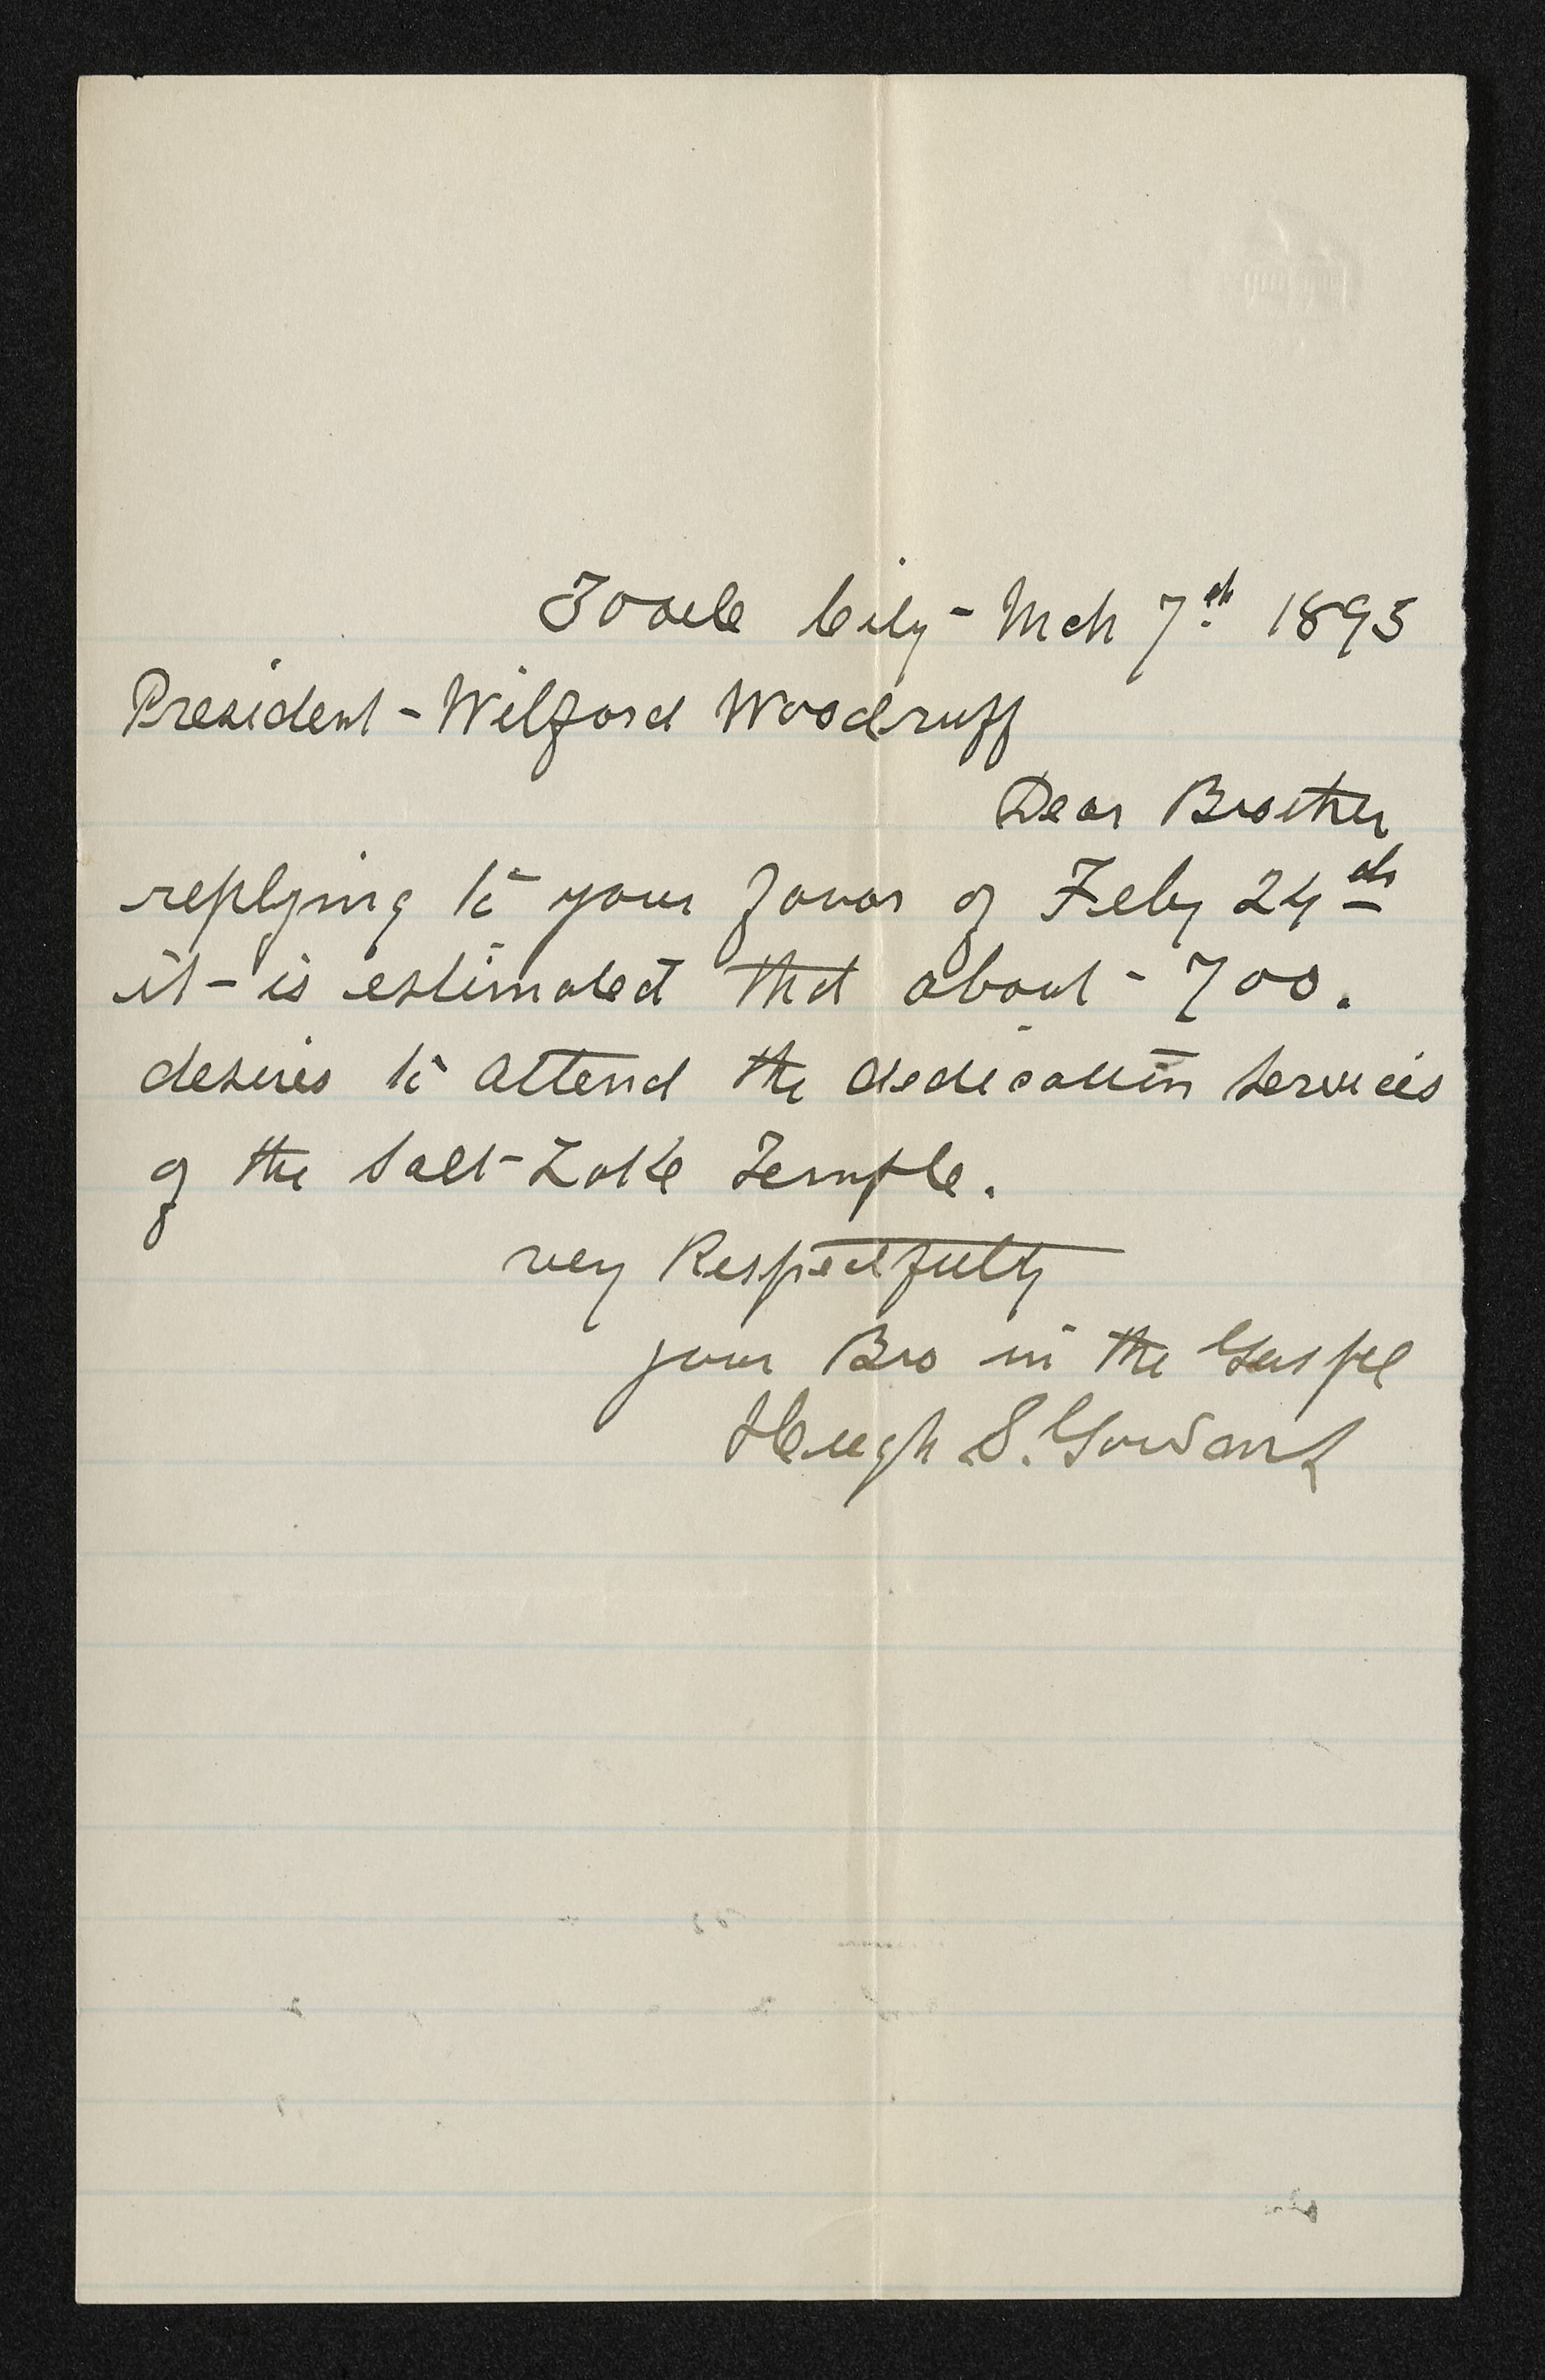 Tooele City - Mch 7th 1893
President - Wilford Woodruff
Dear Brother
replying to your favor of Feby 24th
it - is estimated that about - 700.
desires to attend the dedication services
of the Salt - Lake Temple.
very Respectfully
your Bro in the Gospel
Hugh S. Gowans